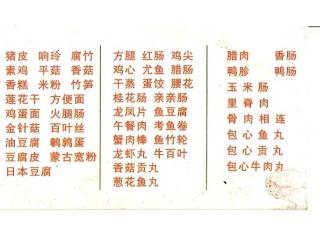 猪皮 响玲 腐竹
素鸡 平菇 香菇
香糕 米粉 竹笋
莲花干 方便面
鸡蛋面 火腿肠
金针菇 百叶丝
油豆腐 鹌鹑蛋
豆腐皮 蒙古宽粉
日本豆腐
方腿 红肠 鸡尖
鸡心 尤鱼 腊肠
干蒸 蛋饺 腰花
桂花肠 亲亲肠
龙凤片 鱼豆腐
午餐肉 考鱼卷
蟹肉棒 鱼竹轮
龙虾丸 牛百叶
香菇贡丸
葱花鱼丸
腊肉 香肠
鸭胗 鸭肠
玉米肠
里脊肉
骨肉相连
包心鱼丸
包心贡丸
包心牛肉丸